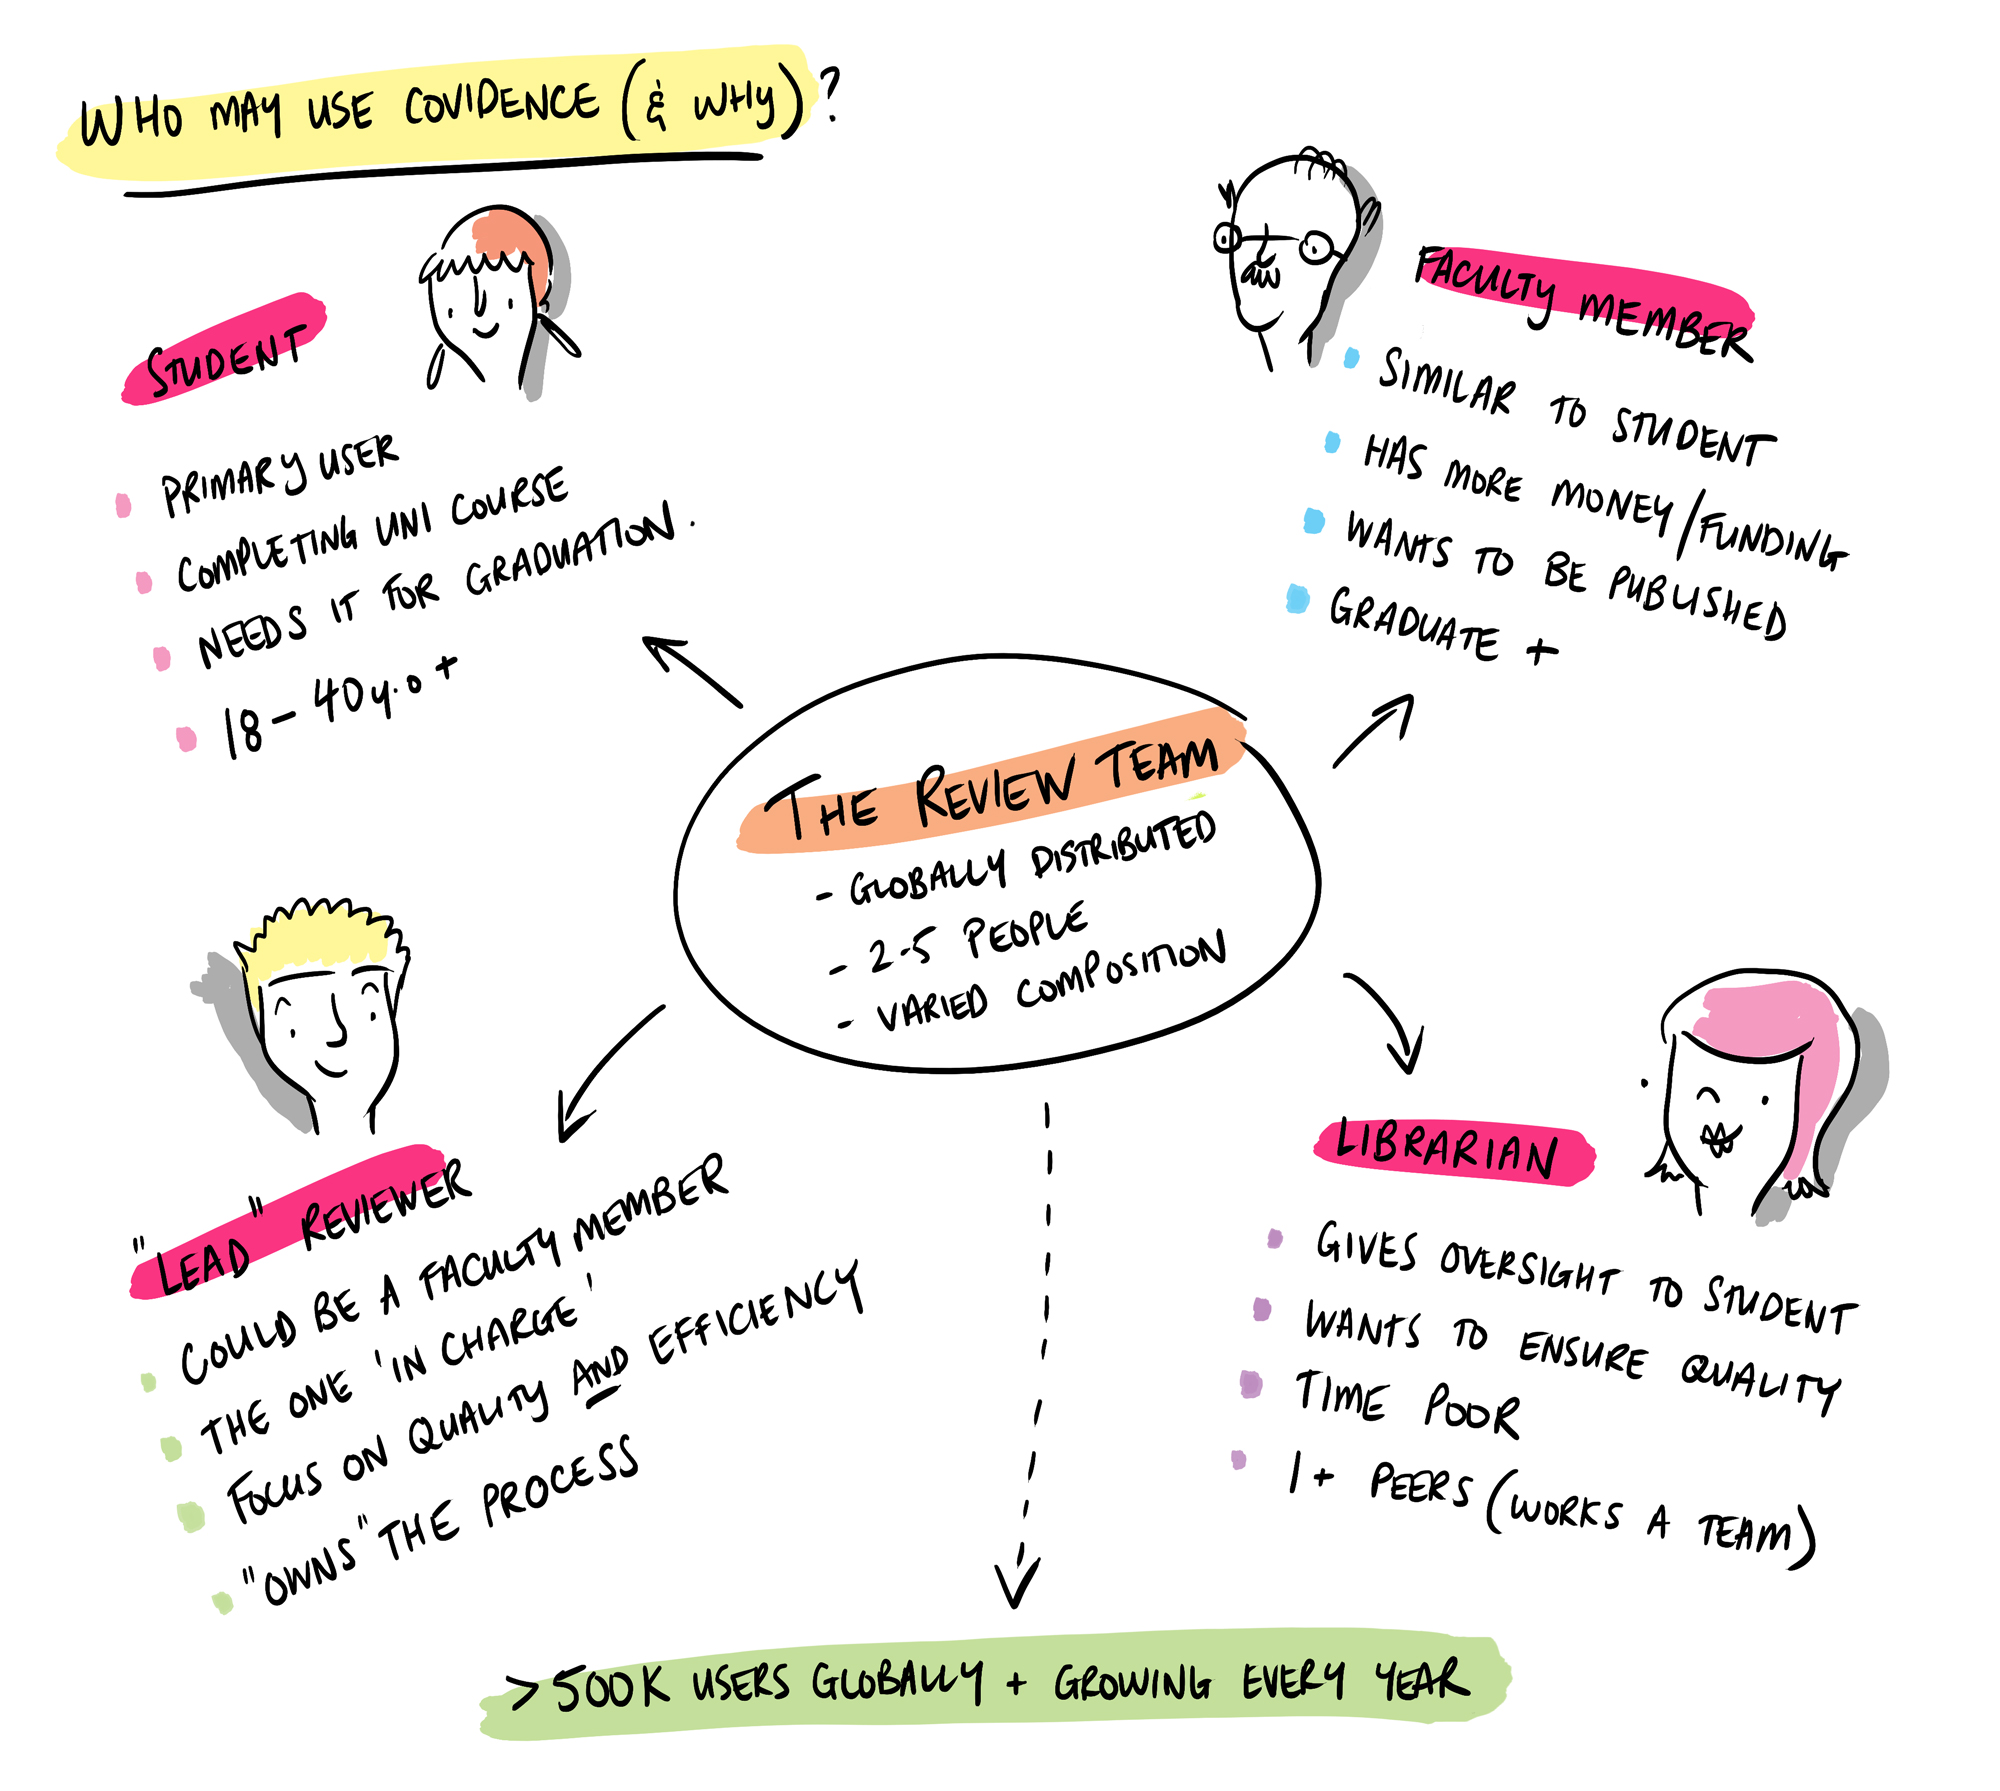 WHO MAY USE COVIDENCE (& WHY)?
STUDENT
PRIMARY USER
COMPLETING UNI COURSE
NEEDS IT FOR GRADUATION.
18 - 40 y.o +
FACULTY MEMBER
SIMILAR TO STUDENT
HAS MORE MONEY/FUNDING
WANTS TO BE PUBLISHED
GRADUATE +
THE REVIEW TEAM
- GLOBALLY DISTRIBUTED
- 2-5 PEOPLE
- VARIED COMPOSITION
"LEAD" REVIEWER
COULD BE A FACULTY MEMBER
THE ONE 'IN CHARGE'
FOCUS ON QUALITY AND EFFICIENCY
"OWNS" THE PROCESS
LIBRARIAN
GIVES OVERSIGHT TO STUDENT
WANTS TO ENSURE QUALITY
TIME POOR
1+ PEERS (WORKS A TEAM)
>500K USERS GLOBALLY + GROWING EVERY YEAR